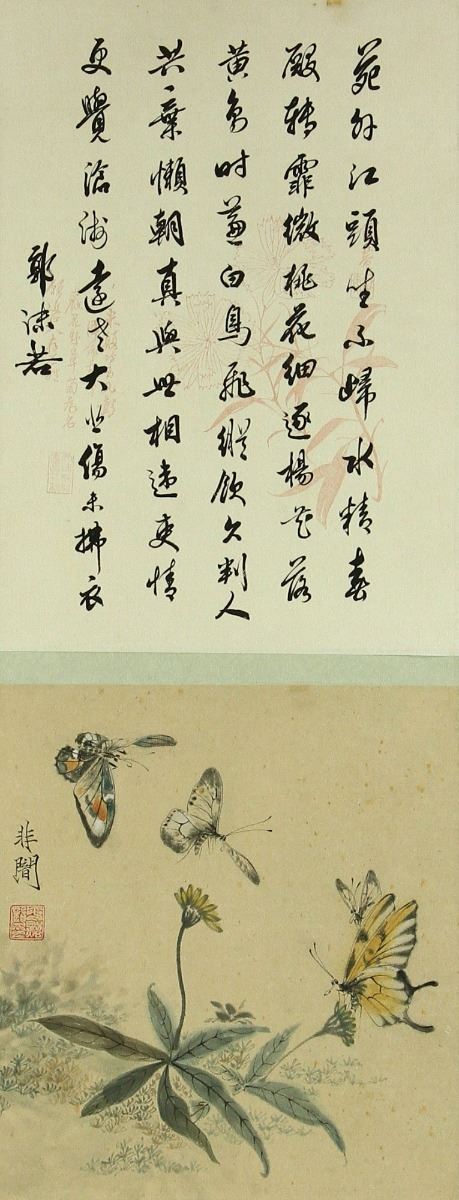 苑外江頭坐不歸水精春
殿轉霏微桃花細逐楊花落
黃鳥時兼白鳥飛縱飲久判人
共棄懶朝真與世相違吏情
更覺滄洲遠老大悲傷未拂衣
郭沫若
非闇